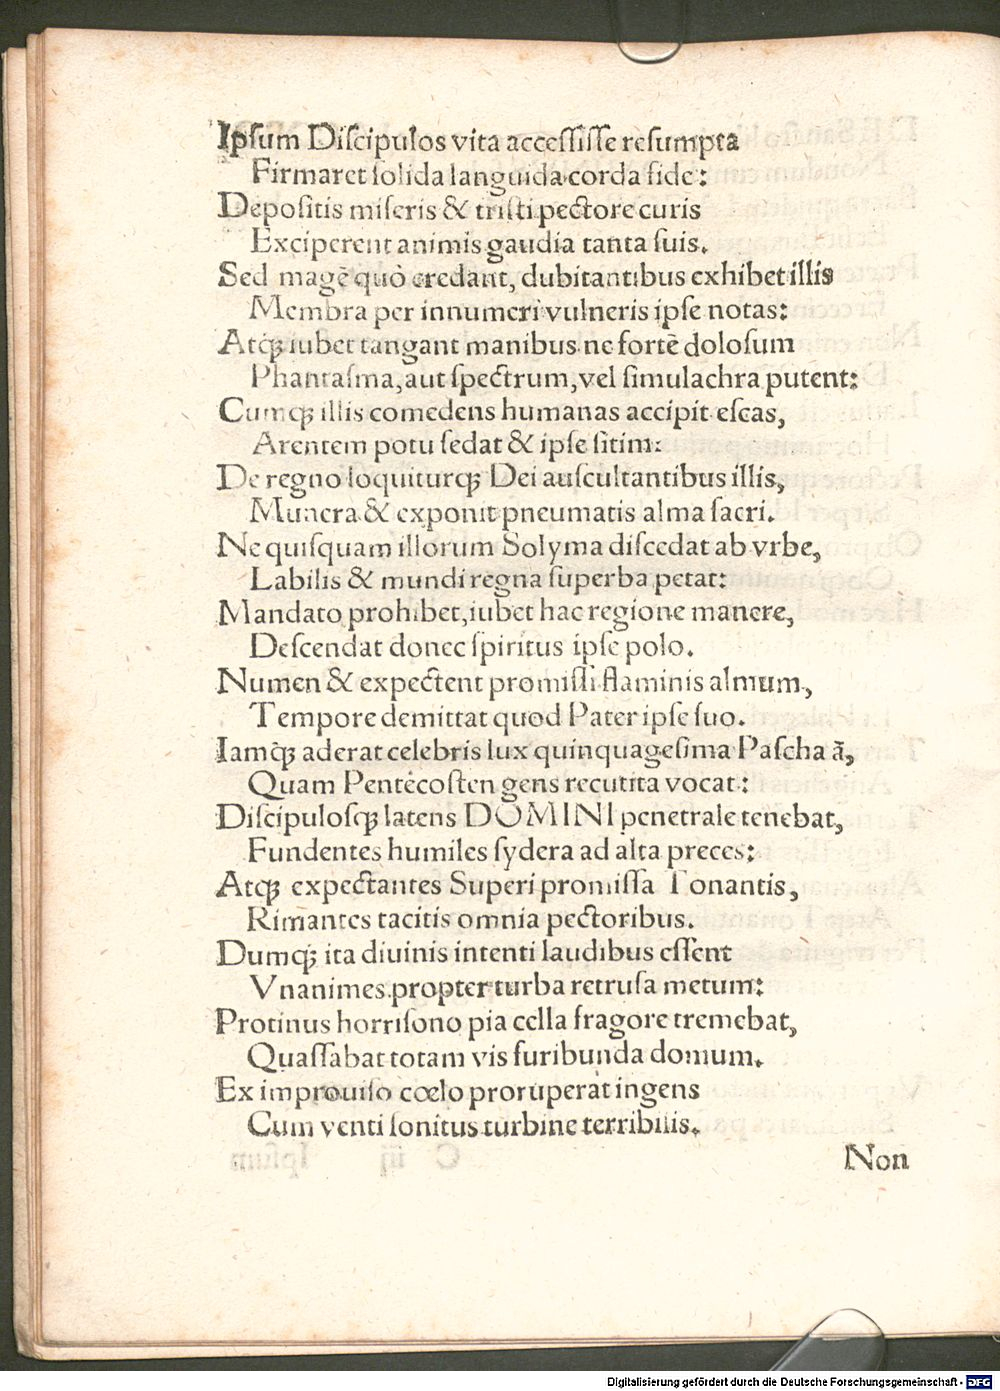 Ipſum Diſcipulos vita acceſſiſſe reſumpta
Firmaret ſolida languida corda fide:
Depoſitis miſeris & triſti pectore curis
Exciperent animis gaudia tanta ſuis.
Sed magè quò credant, dubitantibus exhibet illis
Membra per innumeri vulneris ipſe notas:
Atq́; iubet tangant manibus ne fortè doloſum
Phantaſma, aut ſpectrum, vel ſimulachra putent:
Cumq́; illis comedens humanas accipit eſcas,
Arentem potu ſedat & ipſe ſitim:
De regno loquiturq́; Dei auſcultantibus illis,
Munera & exponit pneumatis alma ſacri.
Ne quiſquam illorum Solyma diſcedat ab vrbe,
Labilis & mundi regna ſuperba petat:
Mandato prohibet, iubet hac regione manere,
Deſcendat donec ſpiritus ipſe polo.
Numen & expectent promiſſi flaminis almum,
Tempore demittat quod Pater ipſe ſuo.
Iamq́; aderat celebris lux quinquageſima Paſcha ā,
Quam Pentècoſten gens recutita vocat:
Diſcipuloſq́; latens DOMINI penetrale tenebat,
Fundentes humiles ſydera ad alta preces:
Atq́; expectantes Superi promiſſa Tonantis,
Rimantes tacitis omnia pectoribus.
Dumq́; ita diuinis intenti laudibus eſſent
Vnanimes propter turba retruſa metum:
Protinus horriſono pia cella fragore tremebat,
Quaſſabat totam vis furibunda domum.
Ex improuiſo cœlo proruperat ingens
Cum venti ſonitus turbine terribilis.
Non
Digitalisierung gefördert durch die Deutsche Forschungsgemeinschaft - DFG